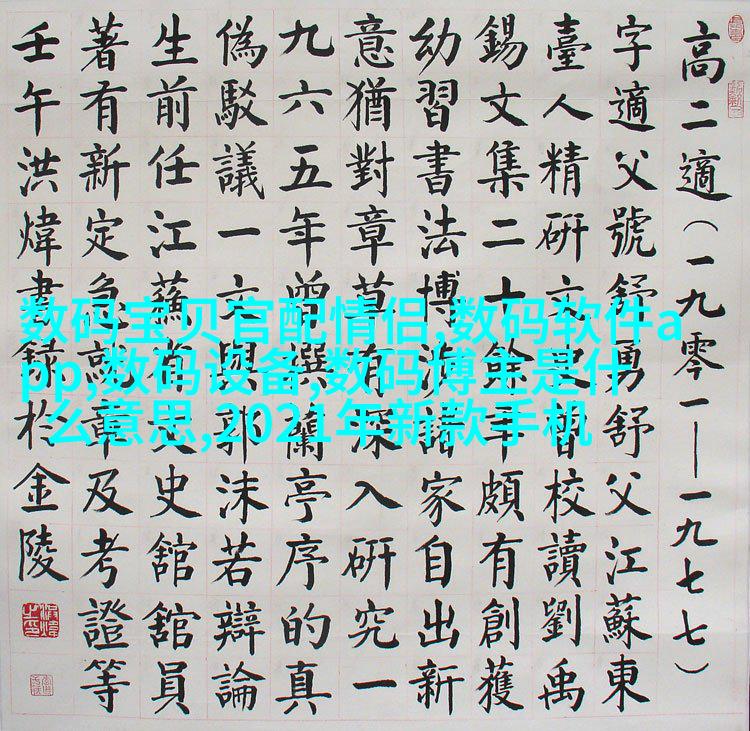 高二適（一九零一—一九七七）
字適父號舒勇舒父江蘇東
臺人精研文史習校讀劉禹
錫文集二十餘年頗有創獲
幼習書法博涉諸家自出新
意猶對章草有深入研究一
九六五年曾撰蘭亭序的真
偽駁議一文與郭沫若辯論
生前任江蘇省文史舘舘員
著有新定急就章及考證等
壬午洪煒書録於金陵
数码宝贝官配情侣,数码软件a
pp,数码设备,数码博主是什
么意思,2021年新款手机